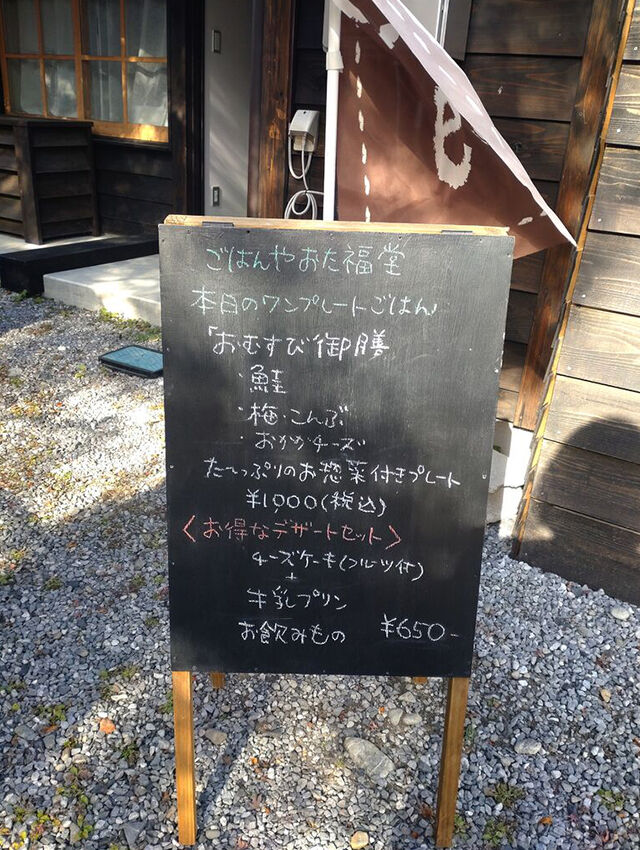 ごはんやおた福堂
本日のワンプレートごはん
「おむすび御膳
・鮭
・梅・こんぶ
・おかかチーズ
た〜っぷりのお惣菜付きプレート
¥1,000(税込)
〈お得なデザートセット〉
チーズケーキ(フルーツ付)
+
牛乳プリン
お飲みもの ¥650-